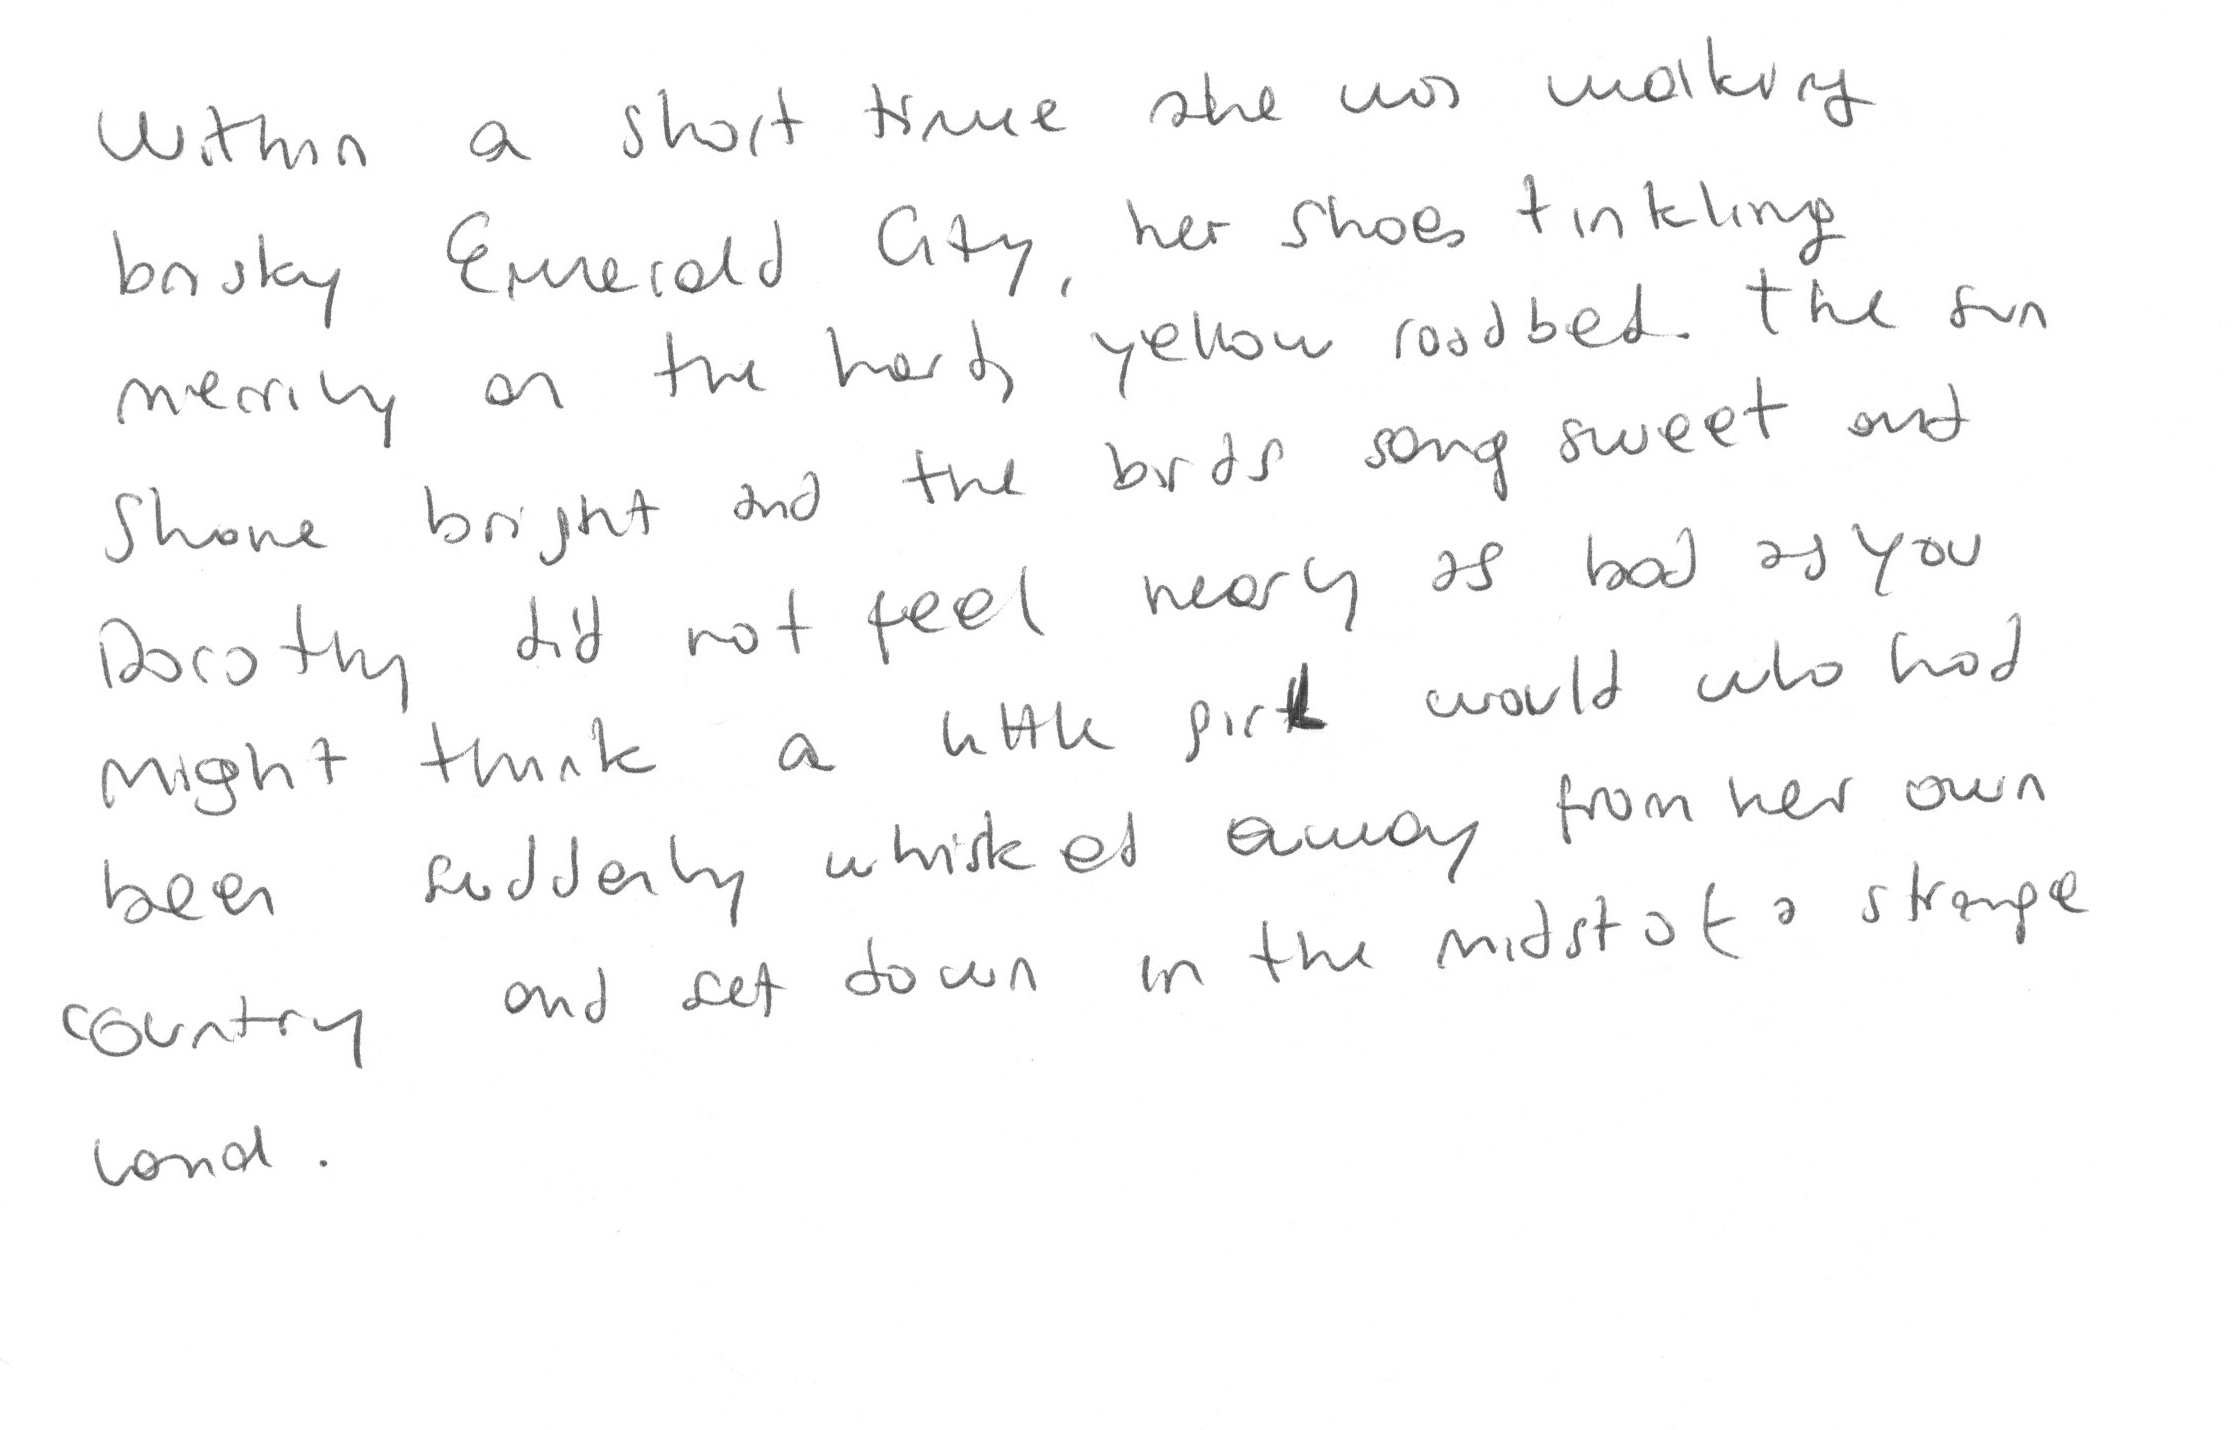 Within a short time she was walking
brisky Emerald City, her shoes tinkling
merrily on the hard, yellow roadbed. The sun
shone bright and the birds sang sweet and
Dorothy did not feel nearly as bad as you
might think a little girl would who had
been suddenly whisked away from her own
country and set down in the midst of a strange
land.